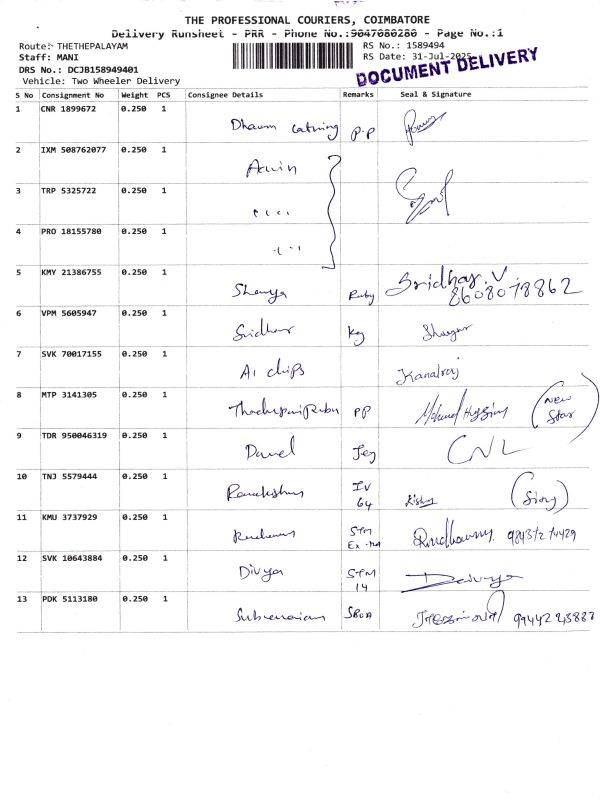 THE PROFESSIONAL COURIERS, COIMBATORE
Delivery Runsheet - PRR - Phone No.:9047080280 - Page No.:1
Route: THETHEPALAYAM
RS No.: 1589494
Staff: MANI
RS Date: 31-Jul-2025
DRS No.: DCJB158949401
DOCUMENT DELIVERY
Vehicle: Two Wheeler Delivery
S No Consignment No Weight PCS Consignee Details Remarks Seal & Signature
1 CNR 1899672 0.250 1 Dhaum catering P.P
2 IXM 508762077 0.250 1 Arvin
3 TRP 5325722 0.250 1
4 PRO 18155780 0.250 1
5 KMY 21386755 0.250 1 Ruby Sridhar. V
8608078862
6 VPM 5605947 0.250 1 Sridhar
7 SVK 70017155 0.250 1 A1 chips Kanalraj
8 MTP 3141305 0.250 1 PP (New Star)
9 TDR 950046319 0.250 1 CNL
10 TNJ 5579444 0.250 1 IV 64
11 KMU 3737929 0.250 1 STM
12 SVK 10643884 0.250 1 Divya STM 14
13 PDK 5113180 0.250 1 SBOA